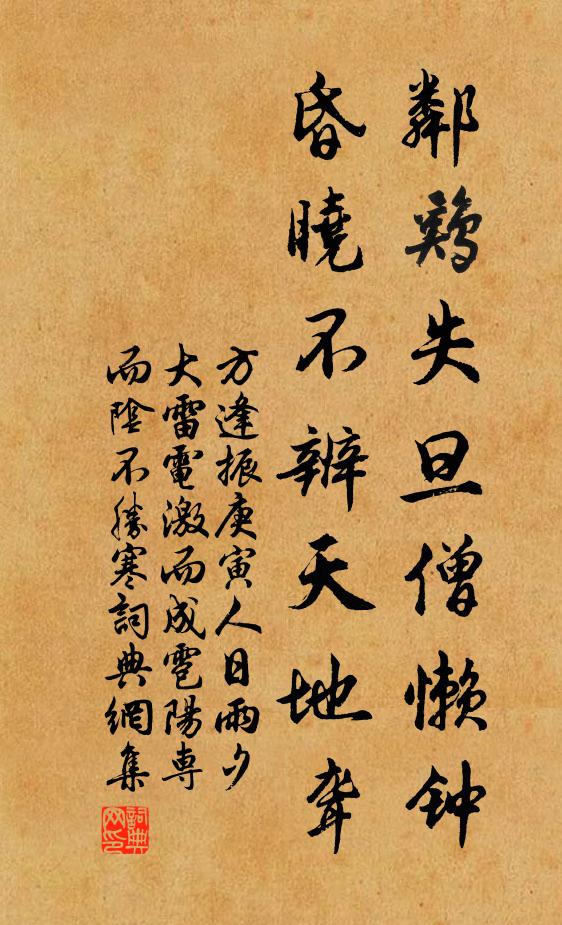 鄰鷄失旦僧懶钟
昏曉不辨天地聾
方逢振庚寅人日雨夕
大雷電激而成雹陽専
而陰不勝寒詞典網集
詞典网印